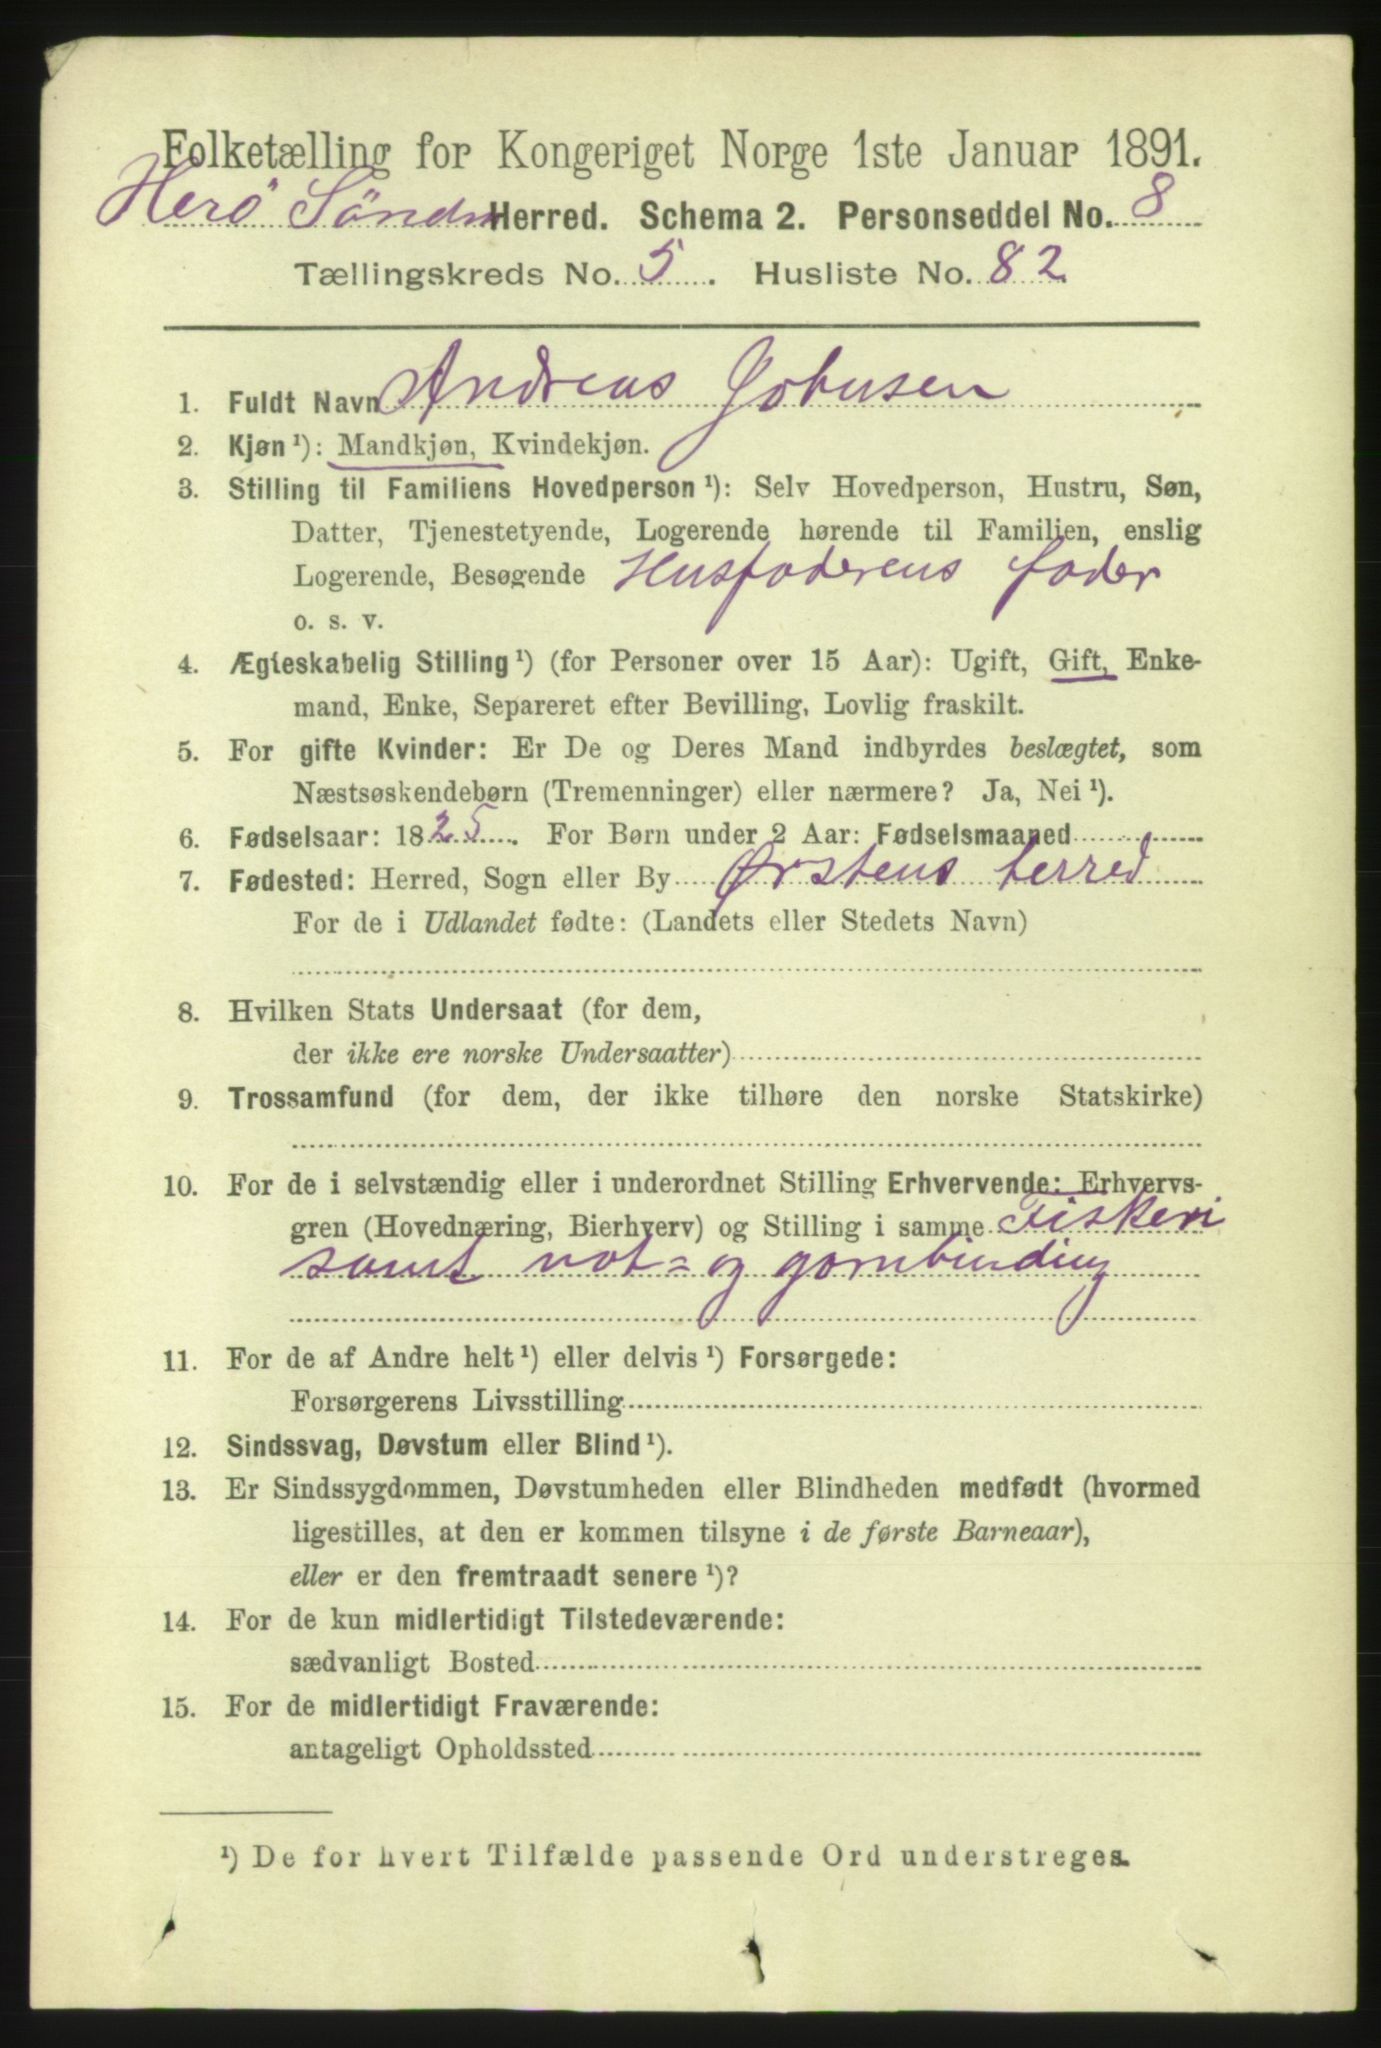 Folketælling for Kongeriget Norge 1ste Januar 1891.
Herö Söndre Herred. Schema 2. Personseddel No. 8
Tællingskreds No. 5. Husliste No. 82
1. Fuldt Navn Andreas Johnsen
2. Kjøn ¹): Mandkjøn, Kvindekjøn.
3. Stilling til Familiens Hovedperson ¹): Selv Hovedperson, Hustru, Søn,
Datter, Tjenestetyende, Logerende hørende til Familien, enslig
Logerende, Besøgende Husfaderens fader
o. s. v.
4. Ægteskabelig Stilling ¹) (for Personer over 15 Aar): Ugift, Gift, Enke-
mand, Enke, Separeret efter Bevilling, Lovlig fraskilt.
5. For gifte Kvinder: Er De og Deres Mand indbyrdes beslægtet, som
Næstsøskendebørn (Tremenninger) eller nærmere? Ja, Nei ¹).
6. Fødselsaar: 1825. For Børn under 2 Aar: Fødselsmaaned
7. Fødested: Herred, Sogn eller By Ørstens herred
For de i Udlandet fødte: (Landets eller Stedets Navn)
8. Hvilken Stats Undersaat (for dem,
der ikke ere norske Undersaatter)
9. Trossamfund (for dem, der ikke tilhøre den norske Statskirke)
10. For de i selvstændig eller i underordnet Stilling Erhvervende: Erhvervs-
gren (Hovednæring, Bierhverv) og Stilling i samme Fiskeri
samt not= og garnbinding
11. For de af Andre helt ¹) eller delvis ¹) Forsørgede:
Forsørgerens Livsstilling
12. Sindssvag, Døvstum eller Blind ¹).
13. Er Sindssygdommen, Døvstumheden eller Blindheden medfødt (hvormed
ligestilles, at den er kommen tilsyne i de første Barneaar),
eller er den fremtraadt senere ¹)?
14. For de kun midlertidigt Tilstedeværende:
sædvanligt Bosted
15. For de midlertidigt Fraværende:
antageligt Opholdssted
¹) De for hvert Tilfælde passende Ord understreges.